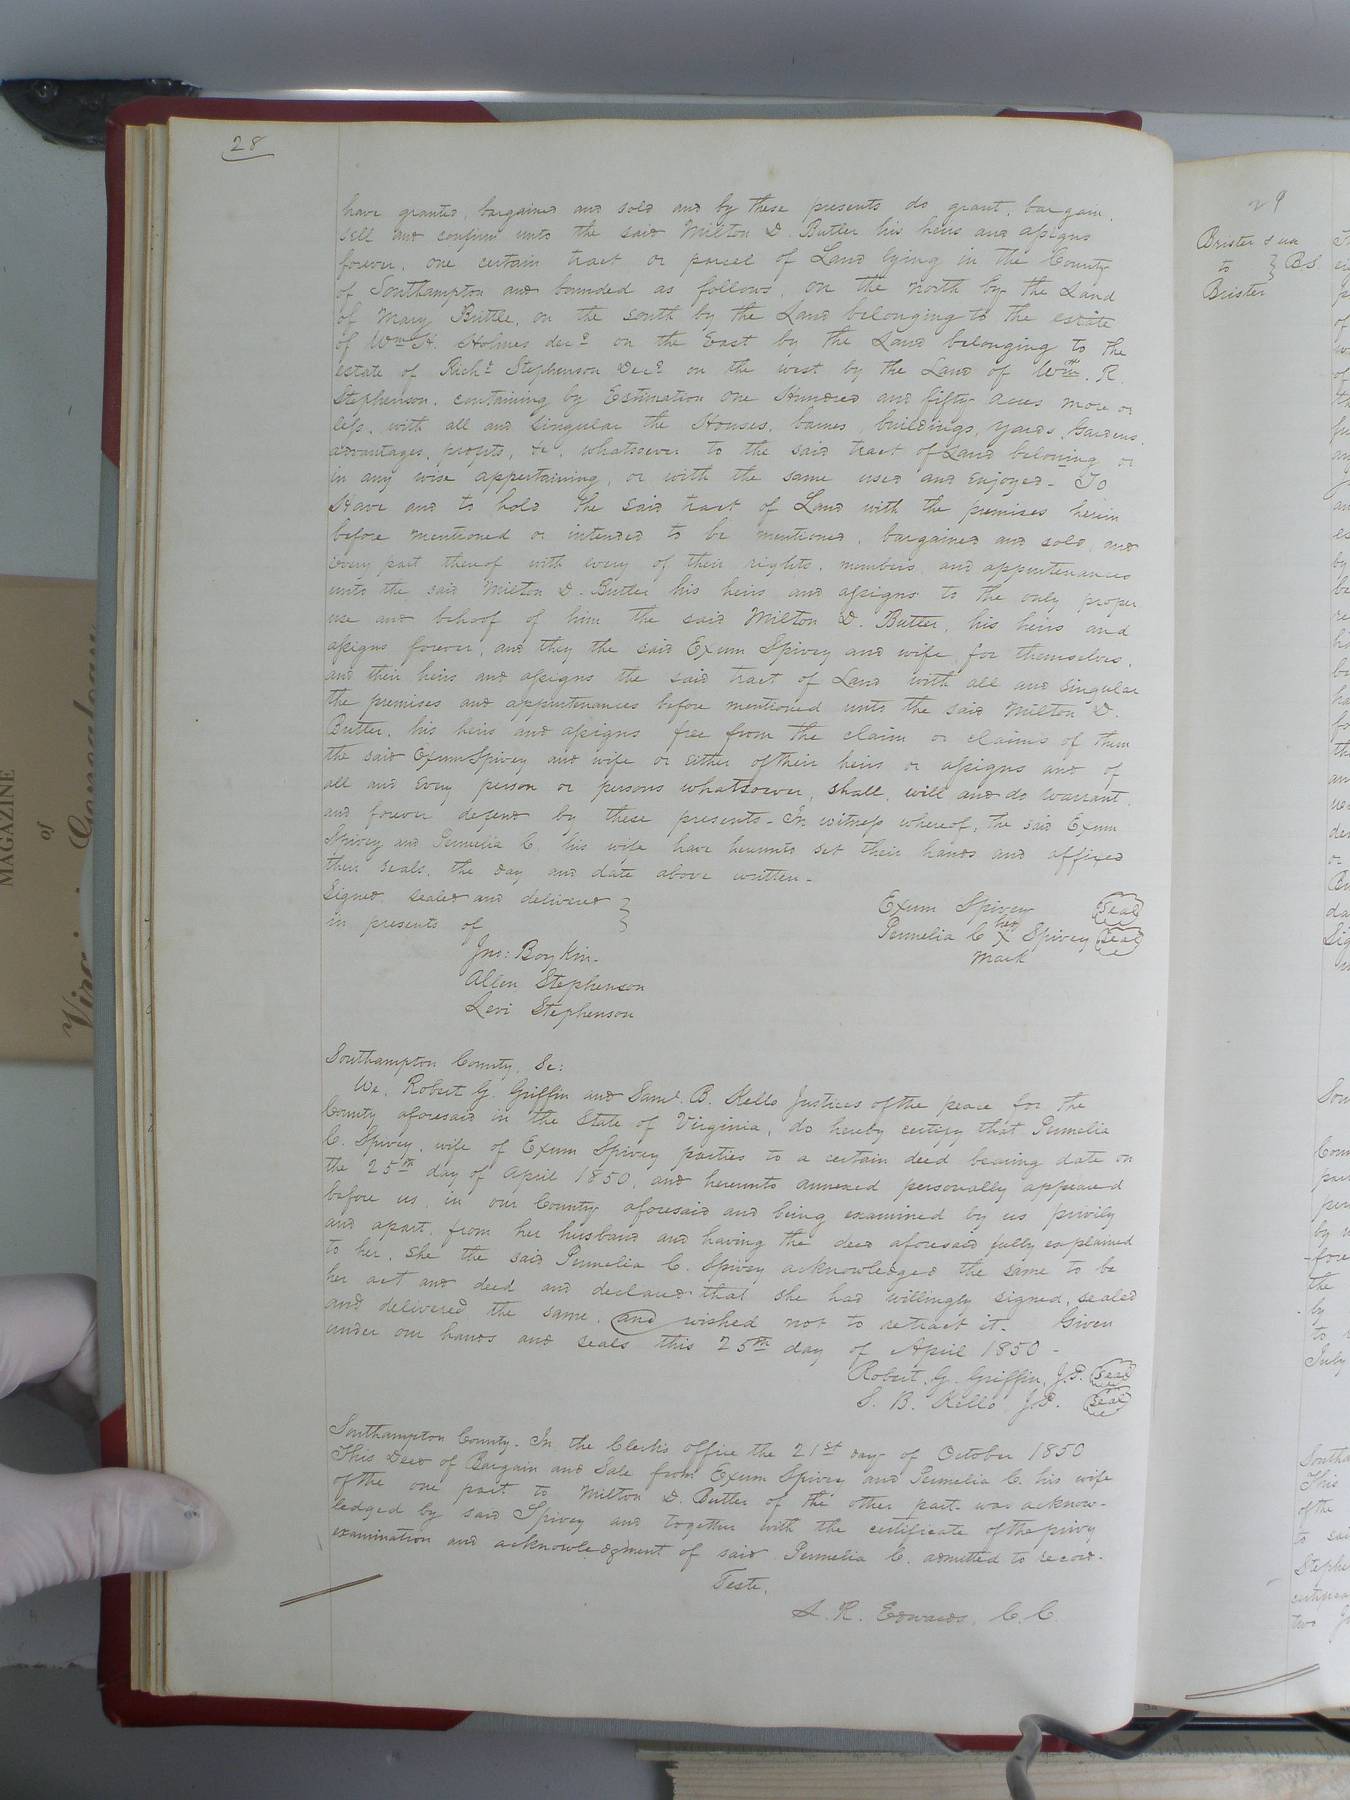 28
have granted, bargained and sold and by these presents do grant, bargain,
sell and confirm unto the said Milton D. Butler his heirs and assigns
forever, one certain tract or parcel of Land lying in the County
of Southampton and bounded as follows, on the north by the Land
of Mary Buttle, on the south by the Land belonging to the estate
of Wm H. Holmes decd on the East by the Land belonging to the
estate of Richd Stephenson Decd on the west by the Land of Wm. R.
Stephenson, containing by Estimation One Hundred and fifty acres more or
less, with all and singular the Houses, barnes, buildings, yards, Gardens,
advantages, profits, &c, whatsoever to the said tract of Land beloning or
in any wise appertaining, or with the same used and enjoyed - To
Have and to hold the said tract of Land with the premises herein
before mentioned or intended to be mentioned, bargained and sold, and
every part thereof with every of their rights, members and appurtenances
unto the said Milton D. Butler his heirs and assigns to the only proper
use and behoof of him the said Milton D. Butler, his heirs and
assigns forever, and they the said Exum Spivey and wife for themselves,
and their heirs and assigns the said tract of Land with all and singular
the premises and appurtenances before mentioned unto the said Milton D.
Butler, his heirs and assigns free from the claim or claims of them
the said Exum Spivey and wife or either of their heirs or assigns and of
all and every person or persons whatsoever, shall, will and do warrant
and forever defend by these presents - In witness whereof, the said Exum
Spivey and Pennelia C. his wife have hereunto set their hands and affixed
their seals, the day and date above written -
Signed, sealed and delivered }
in presents of
Exum Spivey Seal
Pennelia C her X Spivey Seal
mark
Jno: Boykin -
Allen Stephenson
Levi Stephenson
Southampton County, Sc:
We, Robert G. Griffin and Saml. B. Kello Justices of the peace for the
County aforesaid in the State of Virginia, do hereby certify that Pennelia
C. Spivey, wife of Exum Spivey parties to a certain deed bearing date on
the 25th day of April 1850, and hereunto annexed personally appeared
before us, in our County aforesaid and being examined by us privily
and apart, from her husband and having the deed aforesaid fully explained
to her, she the said Pennelia C. Spivey acknowledged the same to be
her act and deed and declared that she had willingly signed, sealed
and delivered the same, and wished not to retract it - Given
under our hands and seals this 25th day of April 1850 -
Robert. G. Griffin, J.P. Seal
S. B. Kello J.P. Seal
Southampton County - In the Clerk's office the 21st day of October 1850
This Deed of Bargain and Sale from Exum Spivey and Pennelia C. his wife
of the one part to Milton D. Butler of the other part was acknow-
ledged by said Spivey and together with the certificate of the privy
examination and acknowledgment of said Pennelia C. admitted to record -
Teste,
L. R. Edwards, C. C.
29
Brister & ux
to } B.S.
Brister
MAGAZINE
of